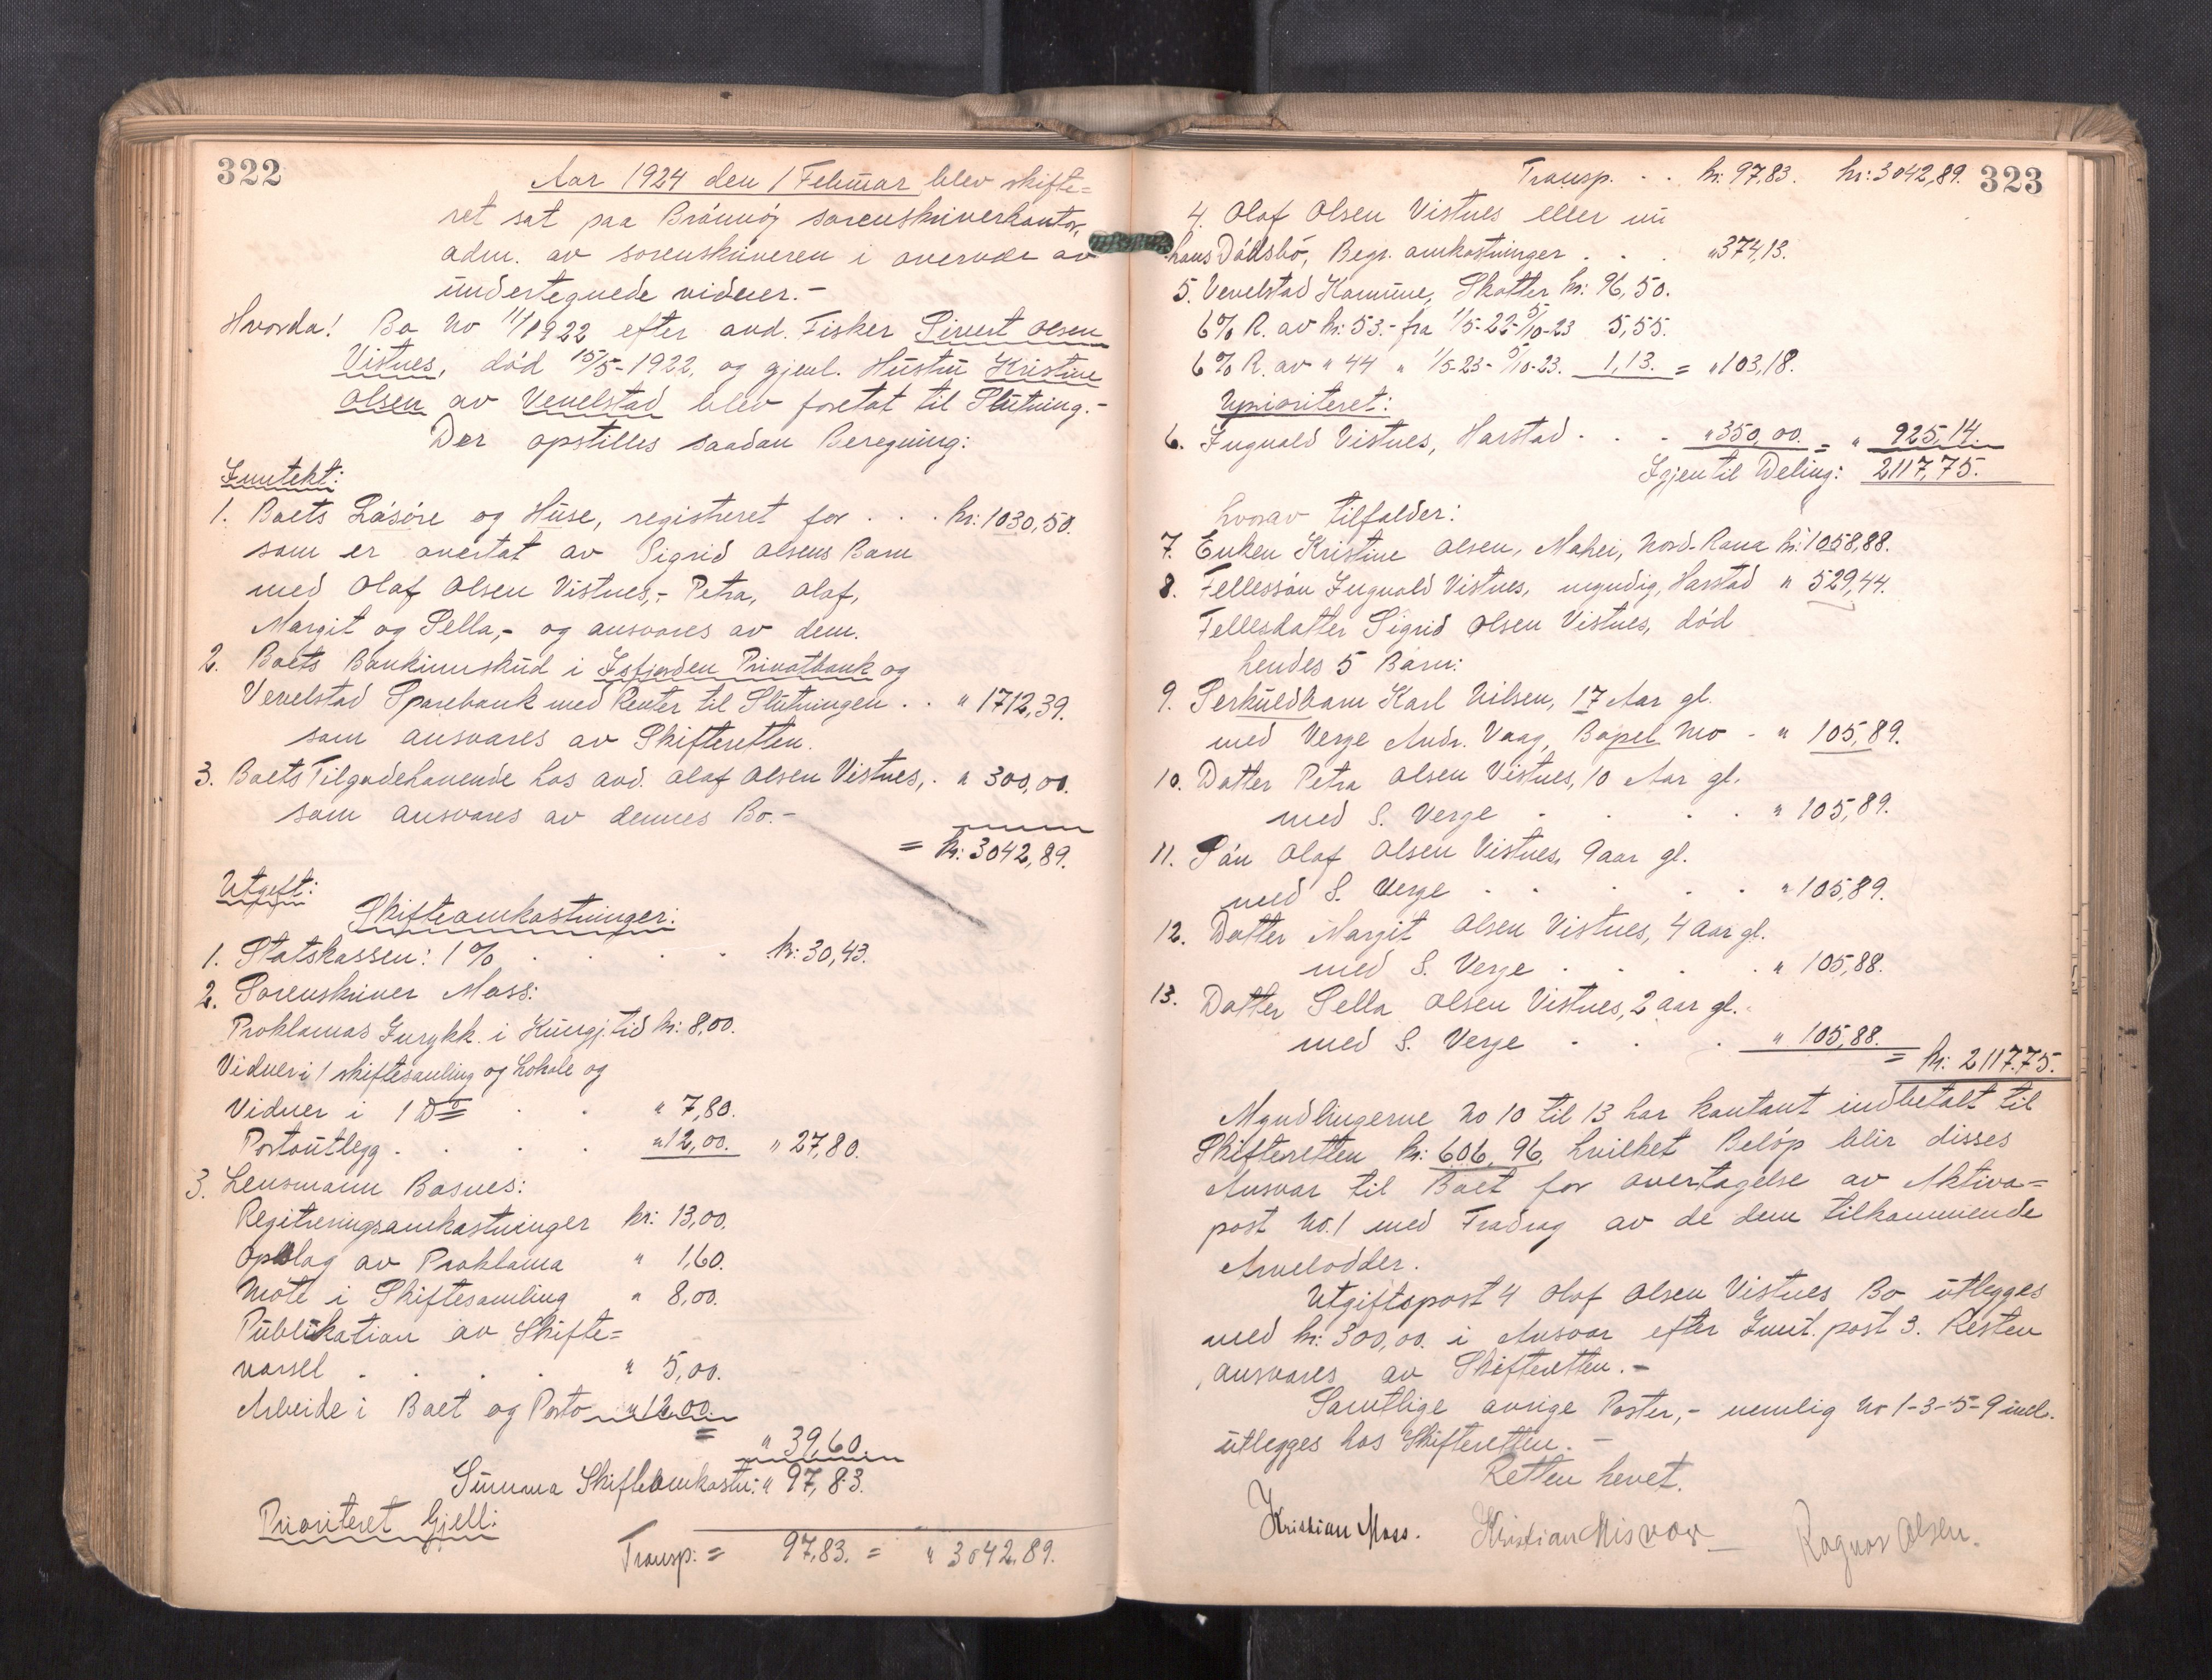 322
Aar 1924 den 1 Februar blev skifte=
ret sat paa Brönnöy sorenskriverkontor,
adm. av sorenskriveren i overvær av
undertegnede vidner.-
Hvorda! Bo No 11/1922 efter avd. Fisker Sivert Olsen
Vistnes, död 15/5-1922, og gjenl. Hustru Kristine
Olsen av Vevelstad blev foretat til Slutning.-
Der opstilles saadan Beregning:
Inntekt:
1. Boets Lösöre og Huse, registreret for . . . kr: 1030,50.
som er overtat av Sigrid Olsens Barn
med Olaf Olsen Vistnes,- Petra, Olaf,
Margit og Sella,- og ansvares av dem.
2. Boets Bankinnskud i Isfjorden Privatbank og
Vevelstad Sparebank med Renter til Slutningen . . " 1712,39.
som ansvares av Skifteretten.
3. Boets Tilgodehavende hos avd. Olaf Olsen Vistnes, . " 300,00.
som ansvares av dennes Bo.-
= kr: 3042,89.
Utgift:
Skifteomkostninger:
1. Statskassen: 1% . . . . kr: 30,43.
2. Sorenskriver Moss:
Proklamas Inrykk. i Kungj.tid kr: 8,00.
Vidner i 1 skiftesamling og Lokale og
Vidner i 1 Do . . " 7,80.
Portoutlegg . . . . " 12,00. " 27,80.
3. Lensmann Bosnes:
Regitreringsomkostninger kr: 13,00.
Opslag av Proklama " 1,60.
Möte i Skiftesamling " 8,00.
Publikation av Skifte=
varsel . . . . " 5,00.
Arbeide i Boet og Porto " 12,00.
= " 39,60.
Summa Skifteomkostn: " 97,83.
Prioriteret Gjell:
Transp: = 97,83. = " 3042,89.
Transp. . . kr: 97,83. kr: 3042,89. 323
4. Olaf Olsen Vistnes eller nu
hans Dödsbö, Begr. omkostninger . . . " 374,13.
5. Vevelstad Komune, Skatter kr: 96,50.
6% R. av kr: 53.- fra 1/5-22-5/10-23 5,55.
6% R. av " 44 " 1/5-23-5/10-23. 1,13. = " 103,18.
Uprioriteret:
6. Ingvald Vistnes, Harstad . . . " 350,00. = " 925,14.
Igjen til Deling: 2117,75.
hvorav tilfalder:
7. Enken Kristine Olsen, Mohei, Nord-Rana kr: 1058,88.
8. Fellessön Ingvald Vistnes, myndig, Harstad " 529,44.
Fellesdatter Sigrid Olsen Vistnes, död
hendes 5 Barn:
9. Serkuldbarn Karl Nilsen, 17 Aar gl.
med Verge Andr. Vaag, Bopel Mo - " 105,89.
10. Datter Petra Olsen Vistnes, 10 Aar gl.
med S. Verge . . . . " 105,89.
11. Sön Olaf Olsen Vistnes, 9 aar gl.
med S. Verge . . . . . " 105,89.
12. Datter Margit Olsen Vistnes, 4 aar gl.
med S. Verge . . . . " 105,88.
13. Datter Sella Olsen Vistnes, 2 aar gl.
med S. Verge . . . " 105,88.
= kr: 2117.75.
Myndlingerne No 10 til 13 har kontant indbetalt til
Skifteretten kr: 606,96, hvilket Belöp blir disses
Ansvar til Boet for overtagelse av Aktiva=
post No.1 med Fradrag av de dem tilkommende
Arvelodder.
Utgiftspost 4 Olaf Olsen Vistnes Bo utlegges
med kr: 300,00. i Ansvar efter Innt. post 3. Resten
ansvares av Skifteretten.-
Samtlige övrige Poster,- nemlig No 1-3-5-9 incl.
utlegges hos Skifteretten.-
Retten hevet.
Kristian Moss. Kristian Misvær Ragnar Olsen.